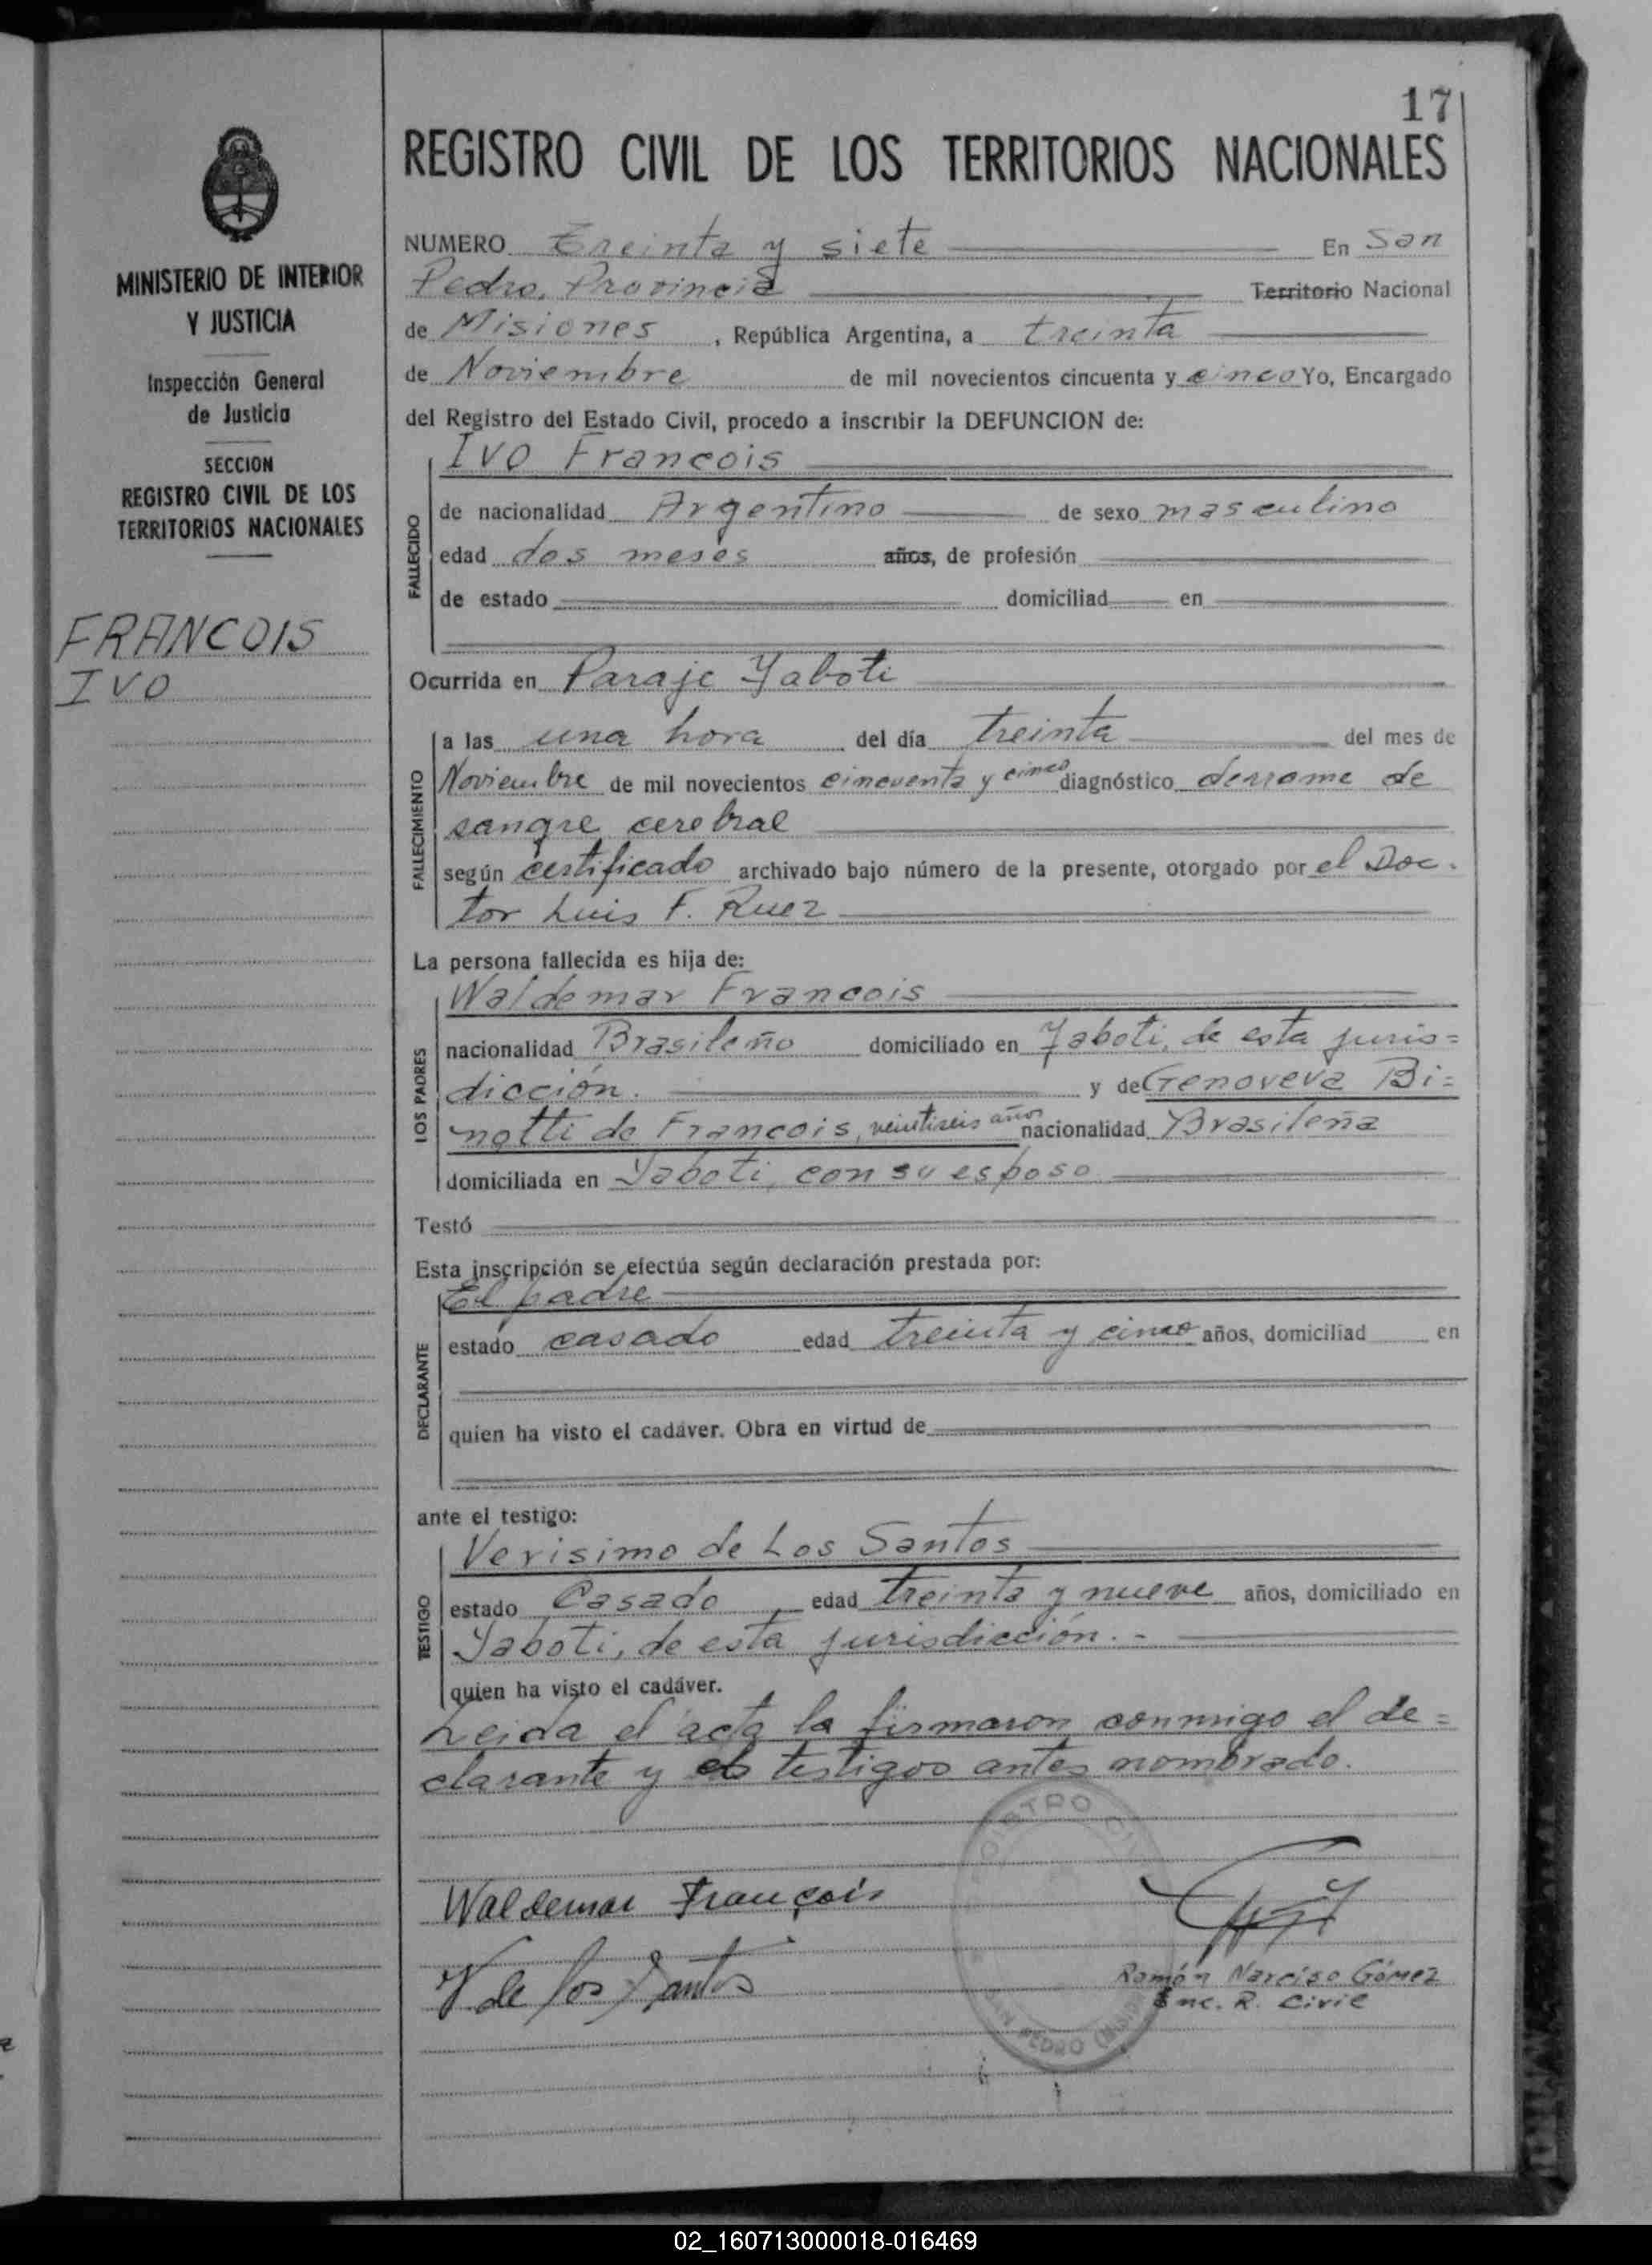 17
REGISTRO CIVIL DE LOS TERRITORIOS NACIONALES
MINISTERIO DE INTERIOR
Y JUSTICIA
Inspección General
de Justicia
SECCION
REGISTRO CIVIL DE LOS
TERRITORIOS NACIONALES
FRANCOIS
IVO
NUMERO Treinta y siete En San
Pedro, Provincia Territorio Nacional
de Misiones, República Argentina, a treinta
de Noviembre de mil novecientos cincuenta y cinco Yo, Encargado
del Registro del Estado Civil, procedo a inscribir la DEFUNCION de:
Ivo Francois
FALLECIDO
de nacionalidad Argentino de sexo masculino
edad dos meses años, de profesión
de estado domiciliad en
Ocurrida en Paraje Yaboti
FALLECIMIENTO
a las una hora del día treinta del mes de
Noviembre de mil novecientos cincuenta y cinco diagnóstico derrame de
sangre cerebral
según certificado archivado bajo número de la presente, otorgado por el Doc-
tor Luis F. Ruez
La persona fallecida es hija de:
Waldemar Francois
LOS PADRES
nacionalidad Brasileño domiciliado en Yaboti, de esta juris=
dicción. y de Genoveva Bi=
notti de Francois, veintiseis años nacionalidad Brasileña
domiciliada en Yaboti, con su esposo
Testó
Esta inscripción se efectúa según declaración prestada por:
El padre
DECLARANTE
estado casado edad treinta y cinco años, domiciliad en
quien ha visto el cadáver. Obra en virtud de
ante el testigo:
Verisimo de Los Santos
TESTIGO
estado Casado edad treinta y nueve años, domiciliado en
Yaboti, de esta jurisdicción.-
quien ha visto el cadáver.
Leida el acta la firmaron conmigo el de=
clarante y el testigos antes nombrado.
Waldemar François
V de los Santos
Ramón Narciso Gómez
Enc. R. Civil
02_160713000018-016469